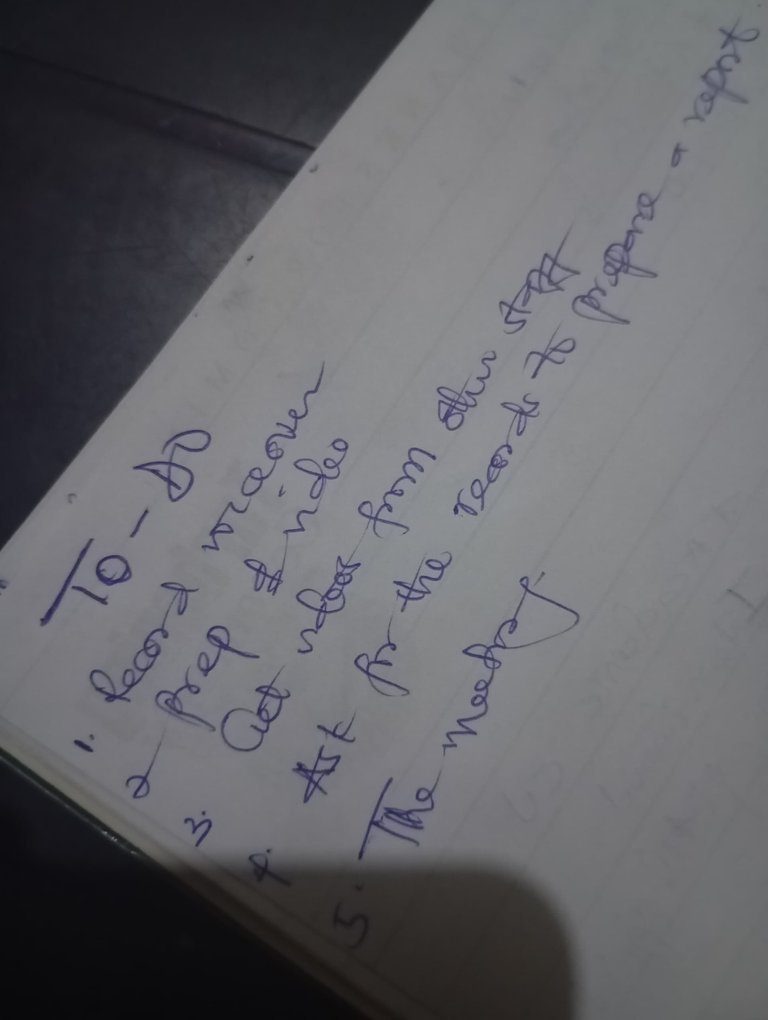 TO-DO
1. Record voiceover
2 Prep & video
3. Get from other staff
4. Ask for the records to prepare a report
5. The meeting